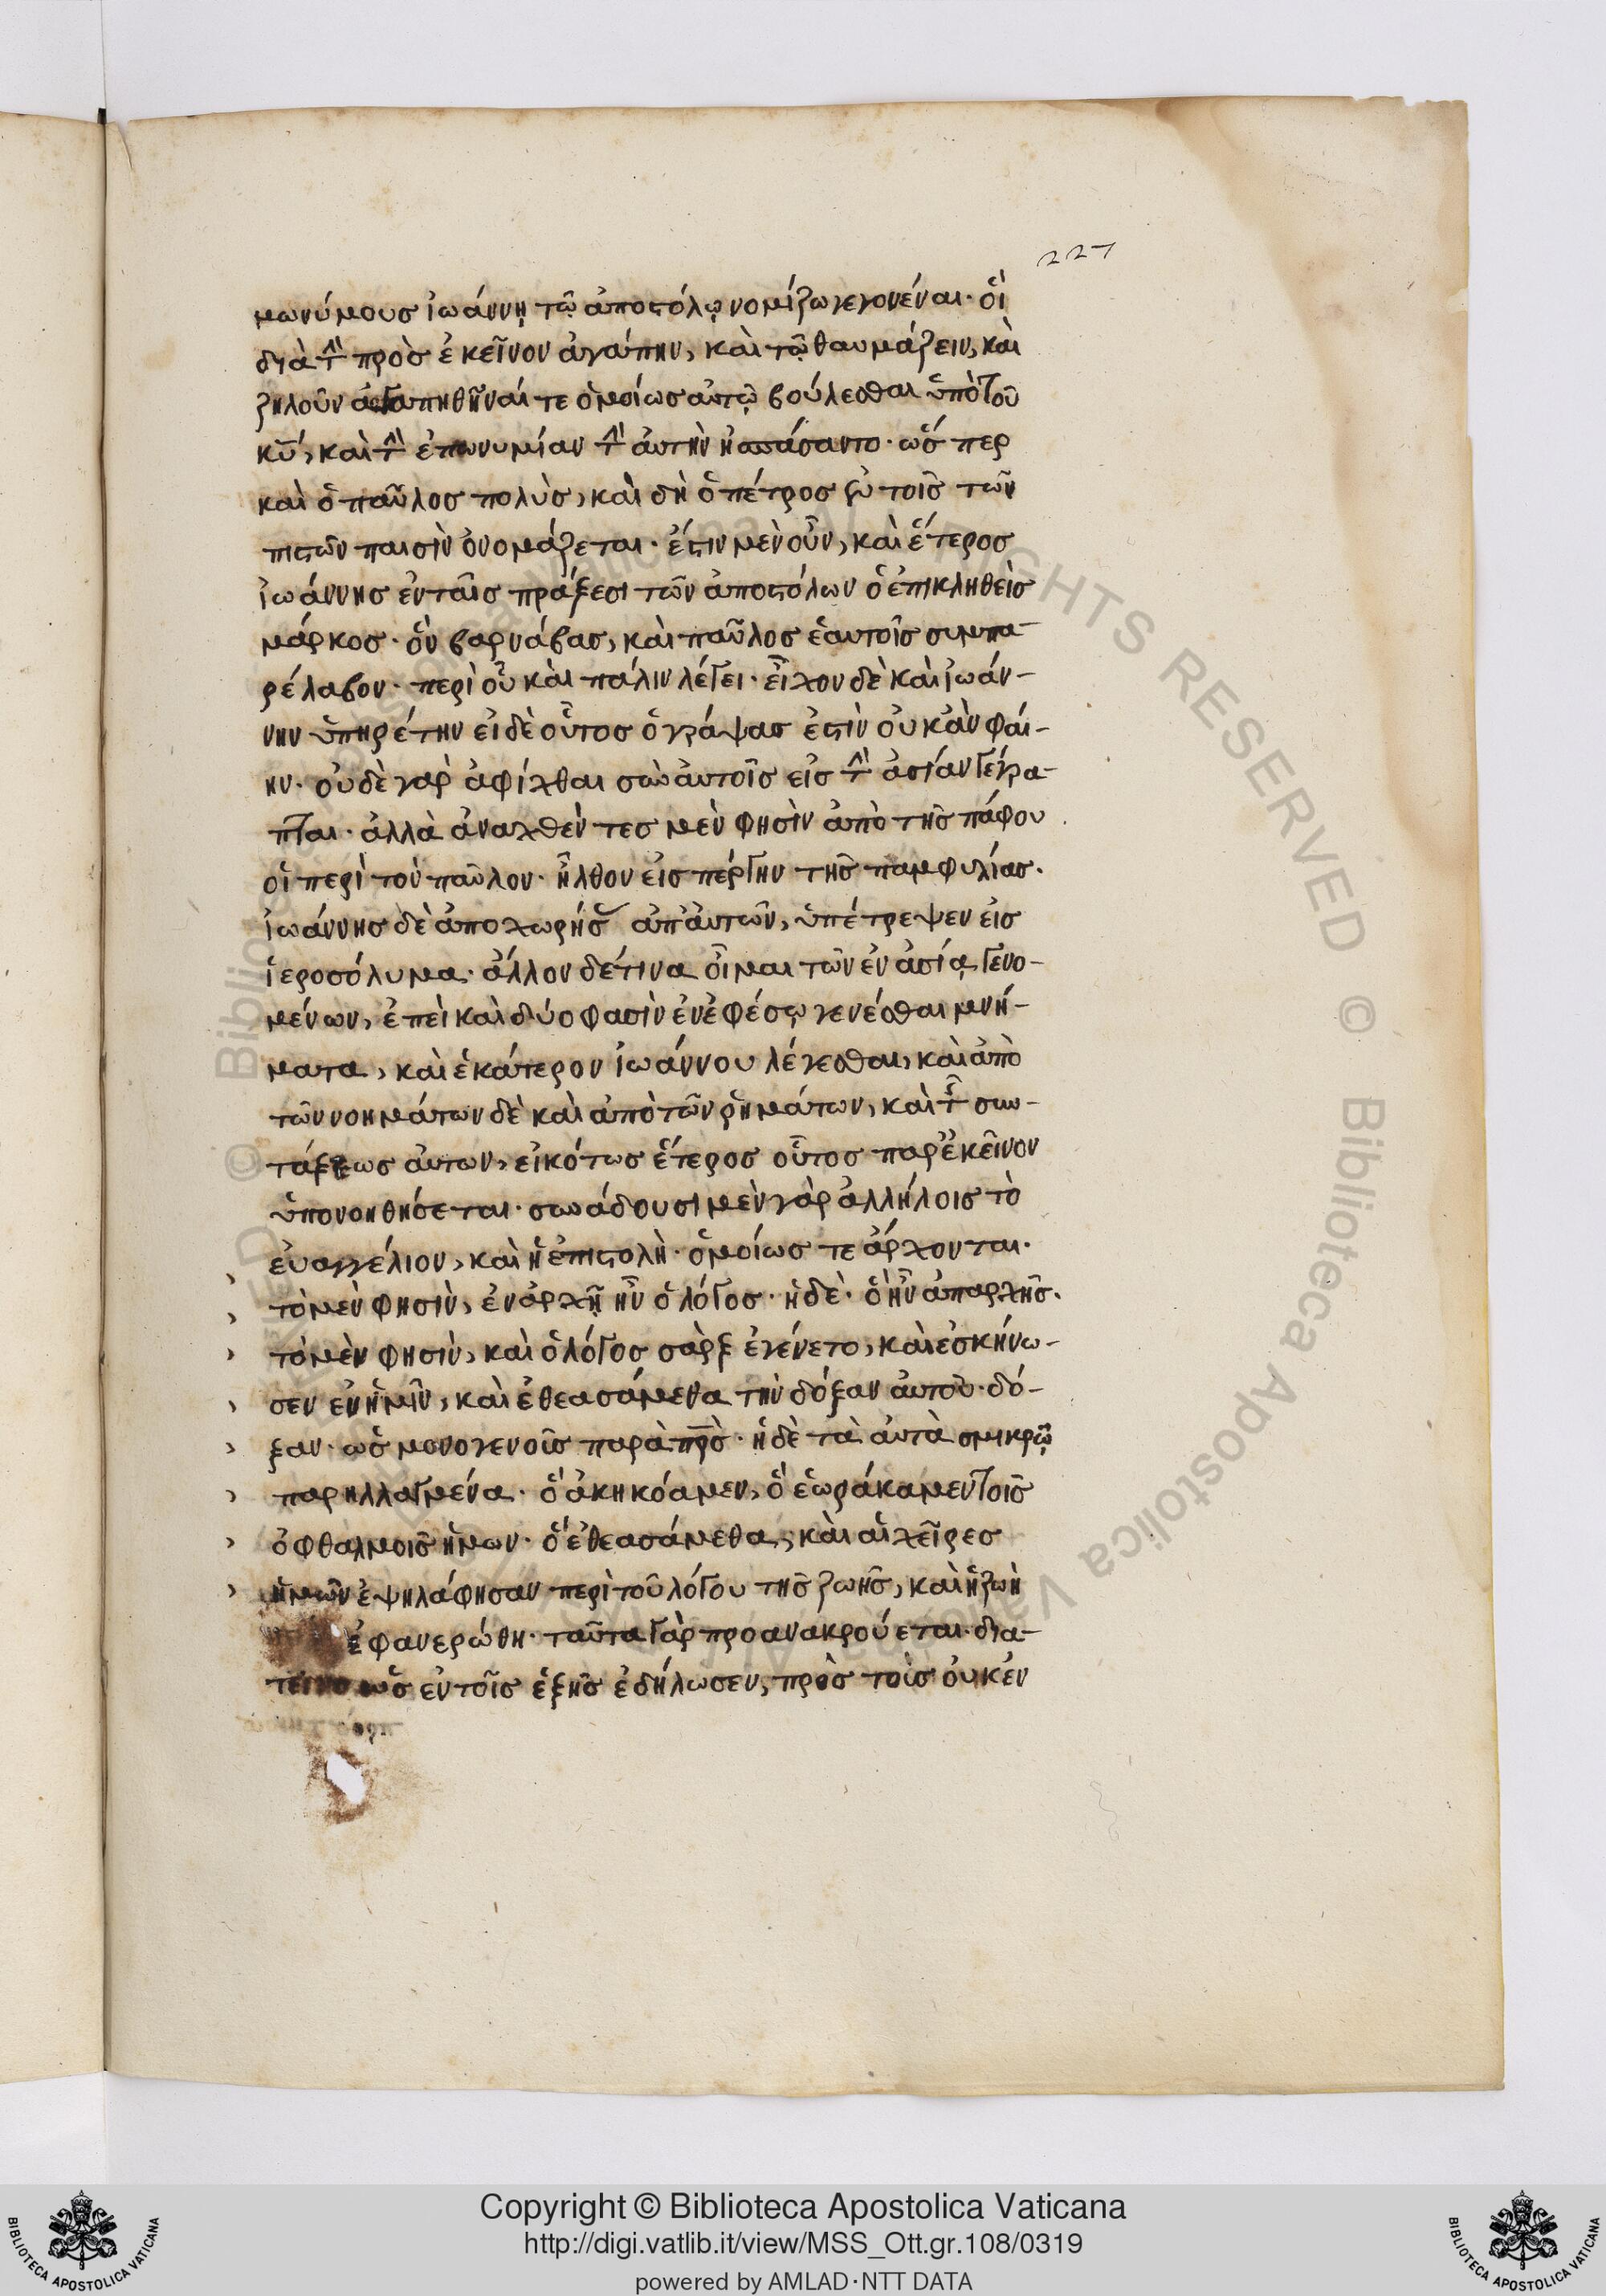 227
μωνύμουσ ἰωάννῃ τῷ ἀποστόλῳ νομίζω γεγονέναι· οἳ
διὰ τὴν πρὸσ ἐκεῖνον ἀγάπην, καὶ τῷ θαυμάζειν, καὶ
ζηλοῦν ἀγαπηθῆναί τε ὁμοίωσ αὐτῷ βούλεσθαι ὑπὸ τοῦ
κυ, καὶ τὴν ἐπωνυμίαν τὴν αὐτὴν ἠσπάσαντο· ὥσπερ
καὶ ὁ παῦλοσ πολὺσ, καὶ δὴ ὁ πέτροσ ἐν τοῖσ τῶν
πιστῶν παισὶν ὀνομάζεται· ἔστιν μὲν οὖν, καὶ ἕτεροσ
ἰωάννησ ἐν ταῖσ πράξεσι τῶν ἀποστόλων ὁ ἐπικληθεὶσ
μάρκοσ· ὃν βαρνάβασ, καὶ παῦλοσ ἑαυτοῖσ συμπα-
ρέλαβον· περὶ οὗ καὶ πάλιν λέγει· εἶχον δὲ καὶ ἰωάν-
νην ὑπηρέτην εἰ δὲ οὗτοσ ὁ γράψασ ἐστὶν οὐκ ἂν φαί-
ην· οὐδὲ γὰρ ἀφίχθαι σὺν αὐτοῖσ εἰσ τὴν ἀσίαν γέγρα-
πται· ἀλλὰ ἀναχθέντεσ μὲν φησὶν ἀπὸ τῆσ πάφου
οἱ περὶ τὸν παῦλον· ἦλθον εἰσ πέργην τῆσ παμφυλίασ.
ἰωάννησ δὲ ἀποχωρήσασ ἀπ' αὐτῶν, ὑπέτρεψεν εἰσ
ἱεροσόλυμα· ἄλλον δέ τινα οἶμαι τῶν ἐν ἀσίᾳ γενο-
μένων, ἐπεὶ καὶ δύο φασὶν ἐν ἐφέσῳ γενέσθαι μνή-
ματα, καὶ ἑκάτερον ἰωάννου λέγεσθαι, καὶ ἀπὸ
τῶν νοημάτων δὲ καὶ ἀπὸ τῶν ῥημάτων, καὶ τῆσ συν-
τάξεωσ αὐτων, εἰκότωσ ἕτεροσ οὗτοσ παρ' ἐκεῖνον
ὑπονοηθήσεται· συνάδουσι μὲν γὰρ ἀλλήλοισ τὸ
εὐαγγέλιον, καὶ ἡ ἐπιστολὴ· ὁμοίωσ τε ἄρχονται·
τὸ μὲν φησὶν, ἐν ἀρχῇ ἦν ὁ λόγοσ· ἡ δὲ· ὃ ἦν ἀπαρχῆσ.
τὸ μὲν φησὶν, καὶ ὁ λόγοσ σὰρξ ἐγένετο, καὶ ἐσκήνω-
σεν ἐν ἡμῖν, καὶ ἐθεασάμεθα τὴν δόξαν αὐτοῦ· δό-
ξαν· ὡσ μονογενοῦσ παρὰ προσ· ἡ δὲ τὰ αὐτὰ σμικρῷ
παρηλλαγμένα· ὃ ἀκηκόαμεν, ὃ ἑωράκαμεν τοῖσ
ὀφθαλμοῖσ ἡμων· ὃ ἐθεασάμεθα, καὶ αἱ χεῖρεσ
ἡμῶν ἐψηλάφησαν περὶ τοῦ λόγου τῆσ ζωῆσ, καὶ ἡ ζωὴ
ἐφανερώθη· ταῦτα γὰρ προανακρούεται· δια-
τεινο ὡσ ἐν τοῖσ ἑξῆσ ἐδήλωσεν, πρὸσ τοὺσ οὐκ ἐν
Copyright © Biblioteca Apostolica Vaticana
http://digi.vatlib.it/view/MSS_Ott.gr.108/0319
powered by AMLAD·NTT DATA